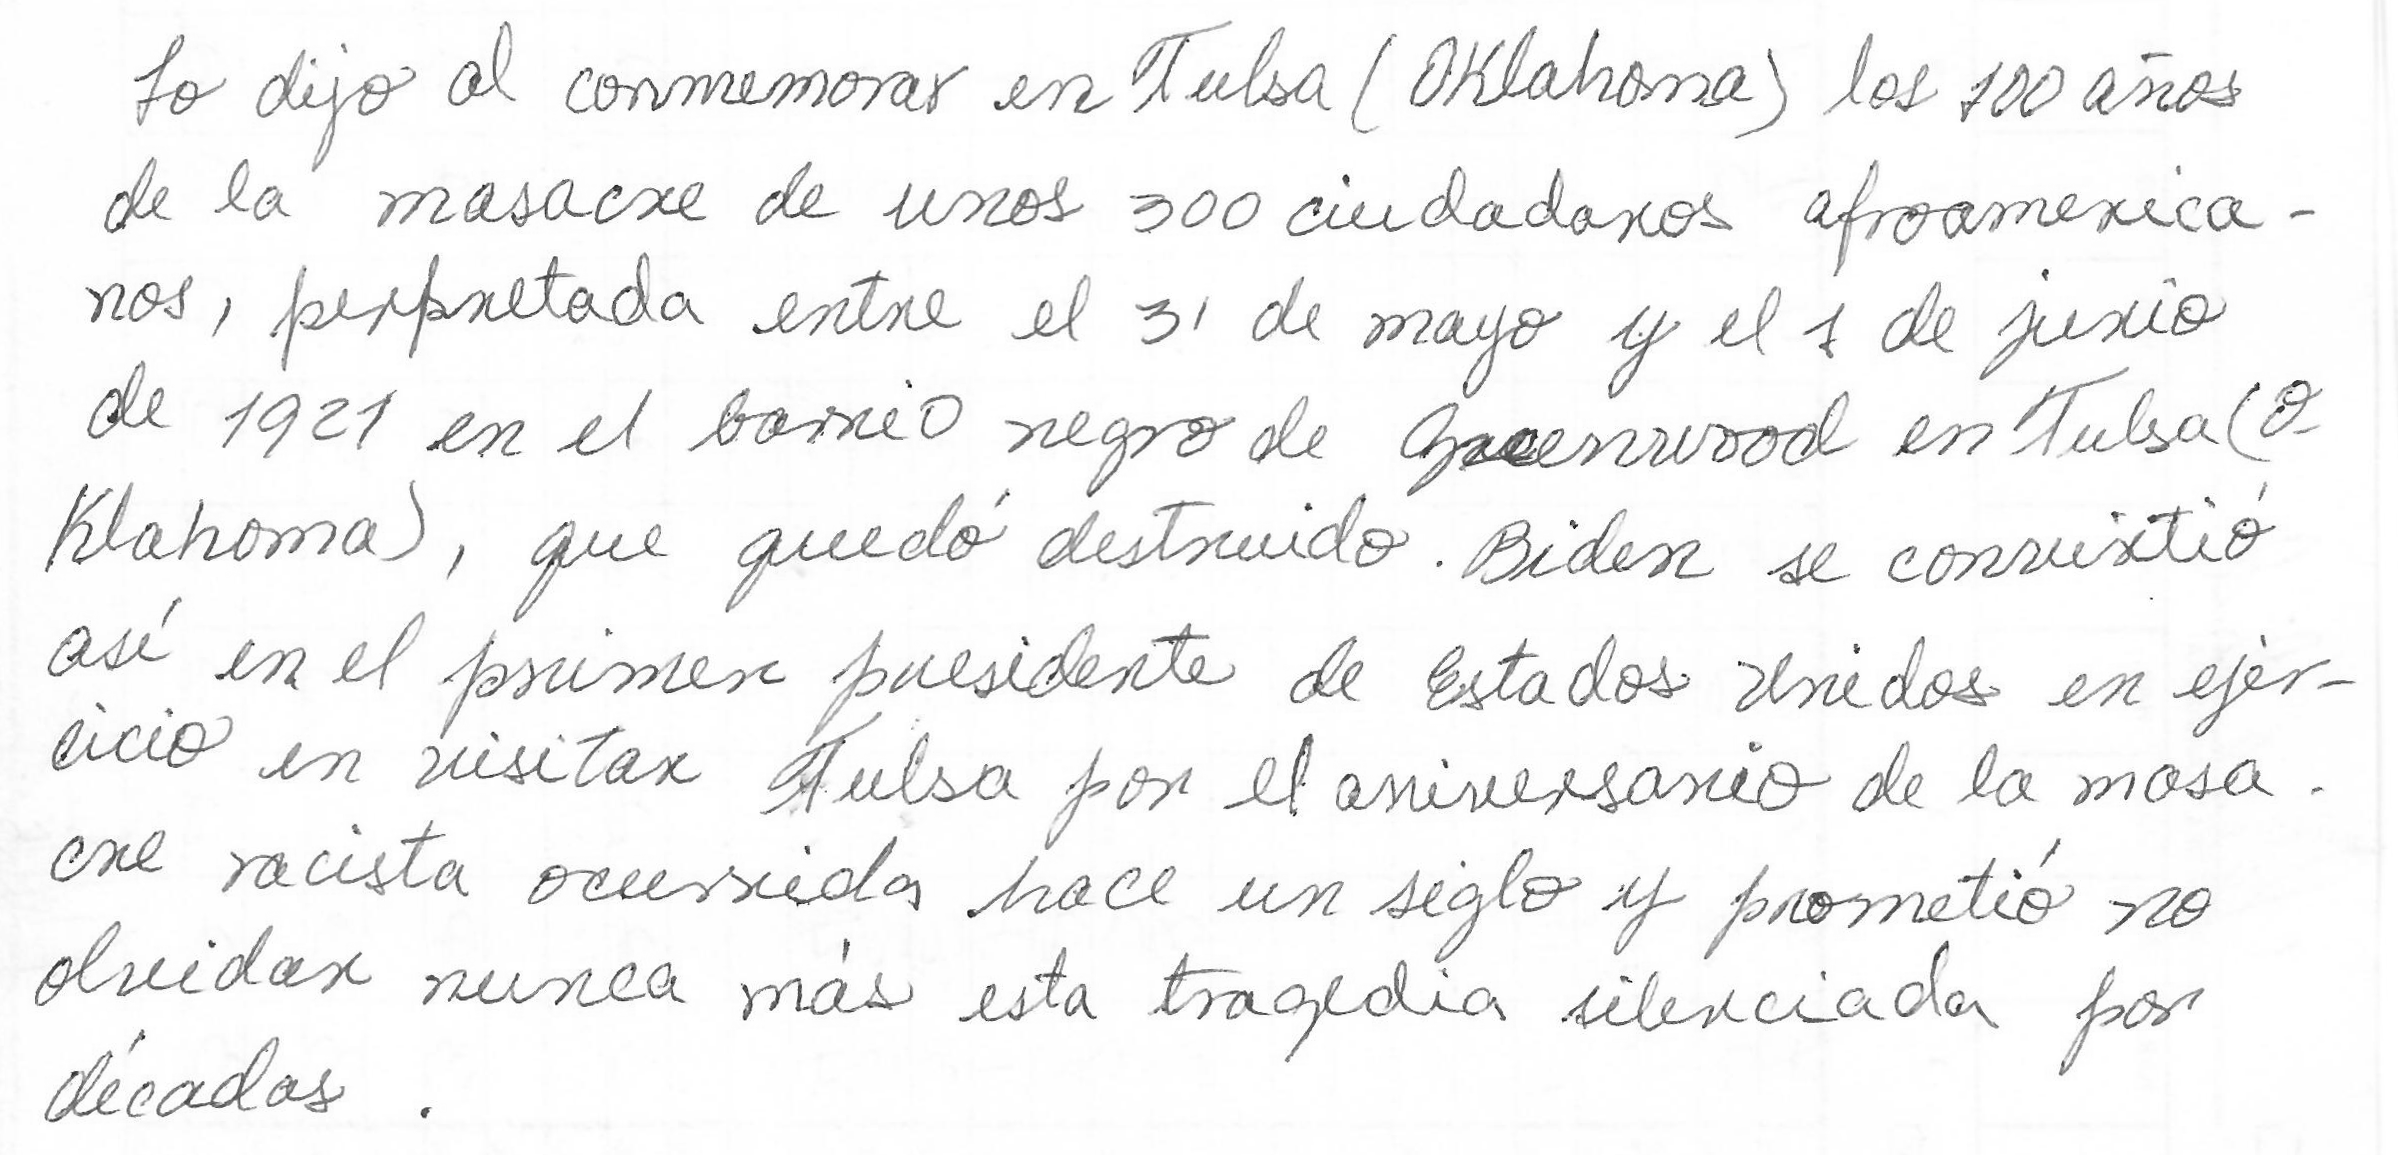 Lo dijo al conmemorar en Tulsa (Oklahoma) los 100 años
de la masacre de unos 300 ciudadanos afroamerica-
nos, perpretada entre el 31 de mayo y el 1 de junio
de 1921 en el barrio negro de Greenwood en Tulsa (O-
klahoma), que quedó destruido. Biden se convirtió
así en el primer presidente de Estados Unidos en ejer-
cicio en visitar Tulsa por el aniversario de la masa-
cre racista ocurrida hace un siglo y prometió no
olvidar nunca más esta tragedia silenciada por
décadas.